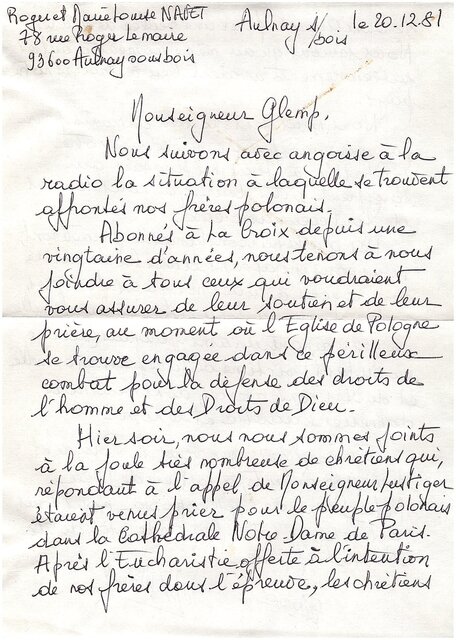 Roger et Marie Louise NAVET
78 rue Roger Lemaire
93600 Aulnay sous bois
Aulnay s/bois le 20.12.81
Monseigneur Glemp.
Nous suivons avec angoisse à la
radio la situation à laquelle se trouvent
affrontés nos frères polonais.
Abonnés à La Croix depuis une
vingtaine d'années, nous tenons à nous
joindre à tous ceux qui voudraient
vous assurer de leur soutien et de leur
prière, au moment où l'Eglise de Pologne
se trouve engagée dans ce périlleux
combat pour la défense des droits de
l'homme et des Droits de Dieu.
Hier soir, nous nous sommes joints
à la foule très nombreuse de chrétiens qui,
répondant à l'appel de Monseigneur Lustiger
étaient venus prier pour le peuple polonais
dans la Cathédrale Notre Dame de Paris.
Après l'Eucharistie offerte à l'intention
de nos frères dans l'épreuve, les chrétiens